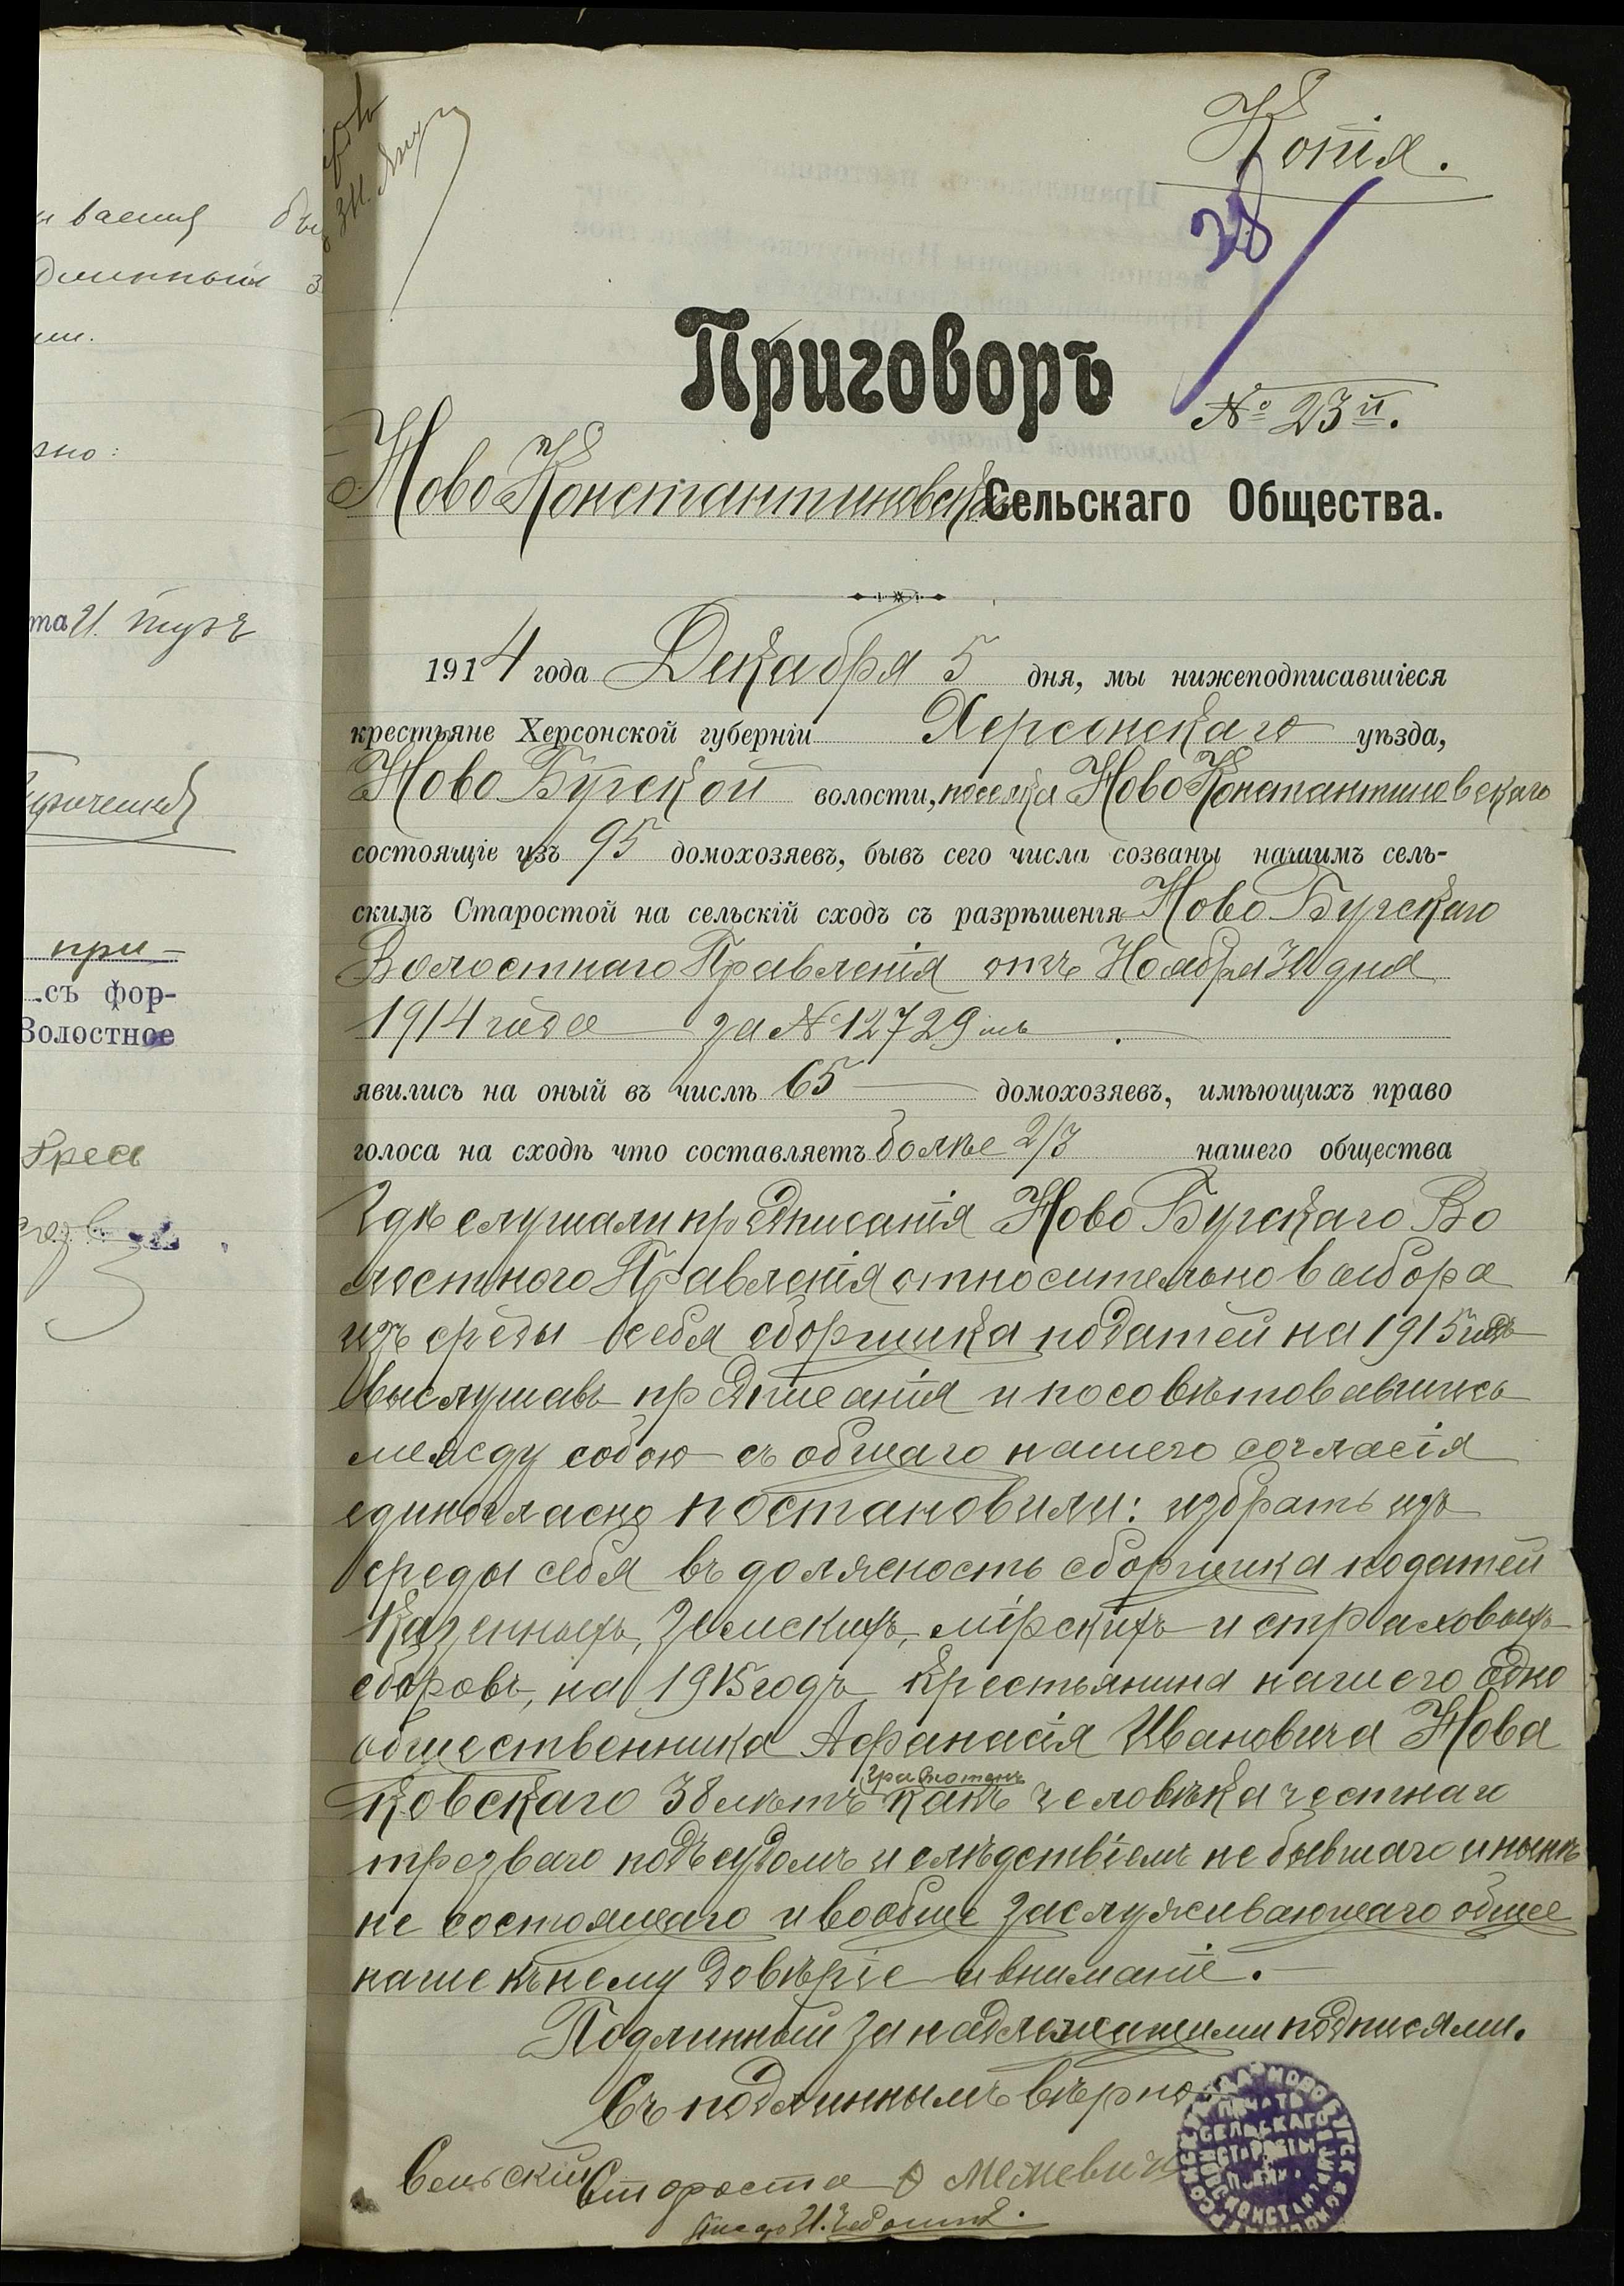 Копія.
28
Приговоръ
№ 23й.
Ново Константиновскаго Сельскаго Общества.
1914 года Декабря 5 дня, мы нижеподписавшіеся
крестьяне Херсонской губерніи Херсонскаго уѣзда,
Ново Бугской волости, поселка Ново Константиновскаго
состоящіе изъ 95 домохозяевъ, бывъ сего числа созваны нашимъ сель-
скимъ Старостой на сельскій сходъ съ разрѣшенія Ново Бугскаго
Волостнаго Правленія отъ Ноября 30 дня
1914 года за № 12729 мъ
явились на оный въ числѣ 65 домохозяевъ, имѣющихъ право
голоса на сходѣ что составляетъ болѣе 2/3 нашего общества
Гдѣ слушали предписанія Ново Бугскаго Во
лостного Правленія относительно выбора
изъ среды себя сборщика податей на 1915 годъ
выслушавъ предписанія и посовѣтовавшись
между собою съ общаго нашего согласія
единогласно постановили: избрать изъ
среды себя въ должность сборщика податей
Казенныхъ, Земскихъ, мірскихъ и страховыхъ
сборовъ, на 1915 годъ крестьянина нашего одно
общественника Афанасія Ивановича Нова
ковскаго 38 лѣтъ грамотенъ какъ человѣка честнаго
трезваго подъ судомъ и слѣдствіемъ не бывшаго и нынѣ
не состоящаго и вообще заслуживающаго общее
наше къ нему довѣріе и вниманіе.
Подлинный за надлежащими подписями.
Съ подлиннымъ вѣрно:
Сельскій Староста Межевичъ
ваемы
длинный
ми.
но:
та И.
при-
съ фор-
Волостное